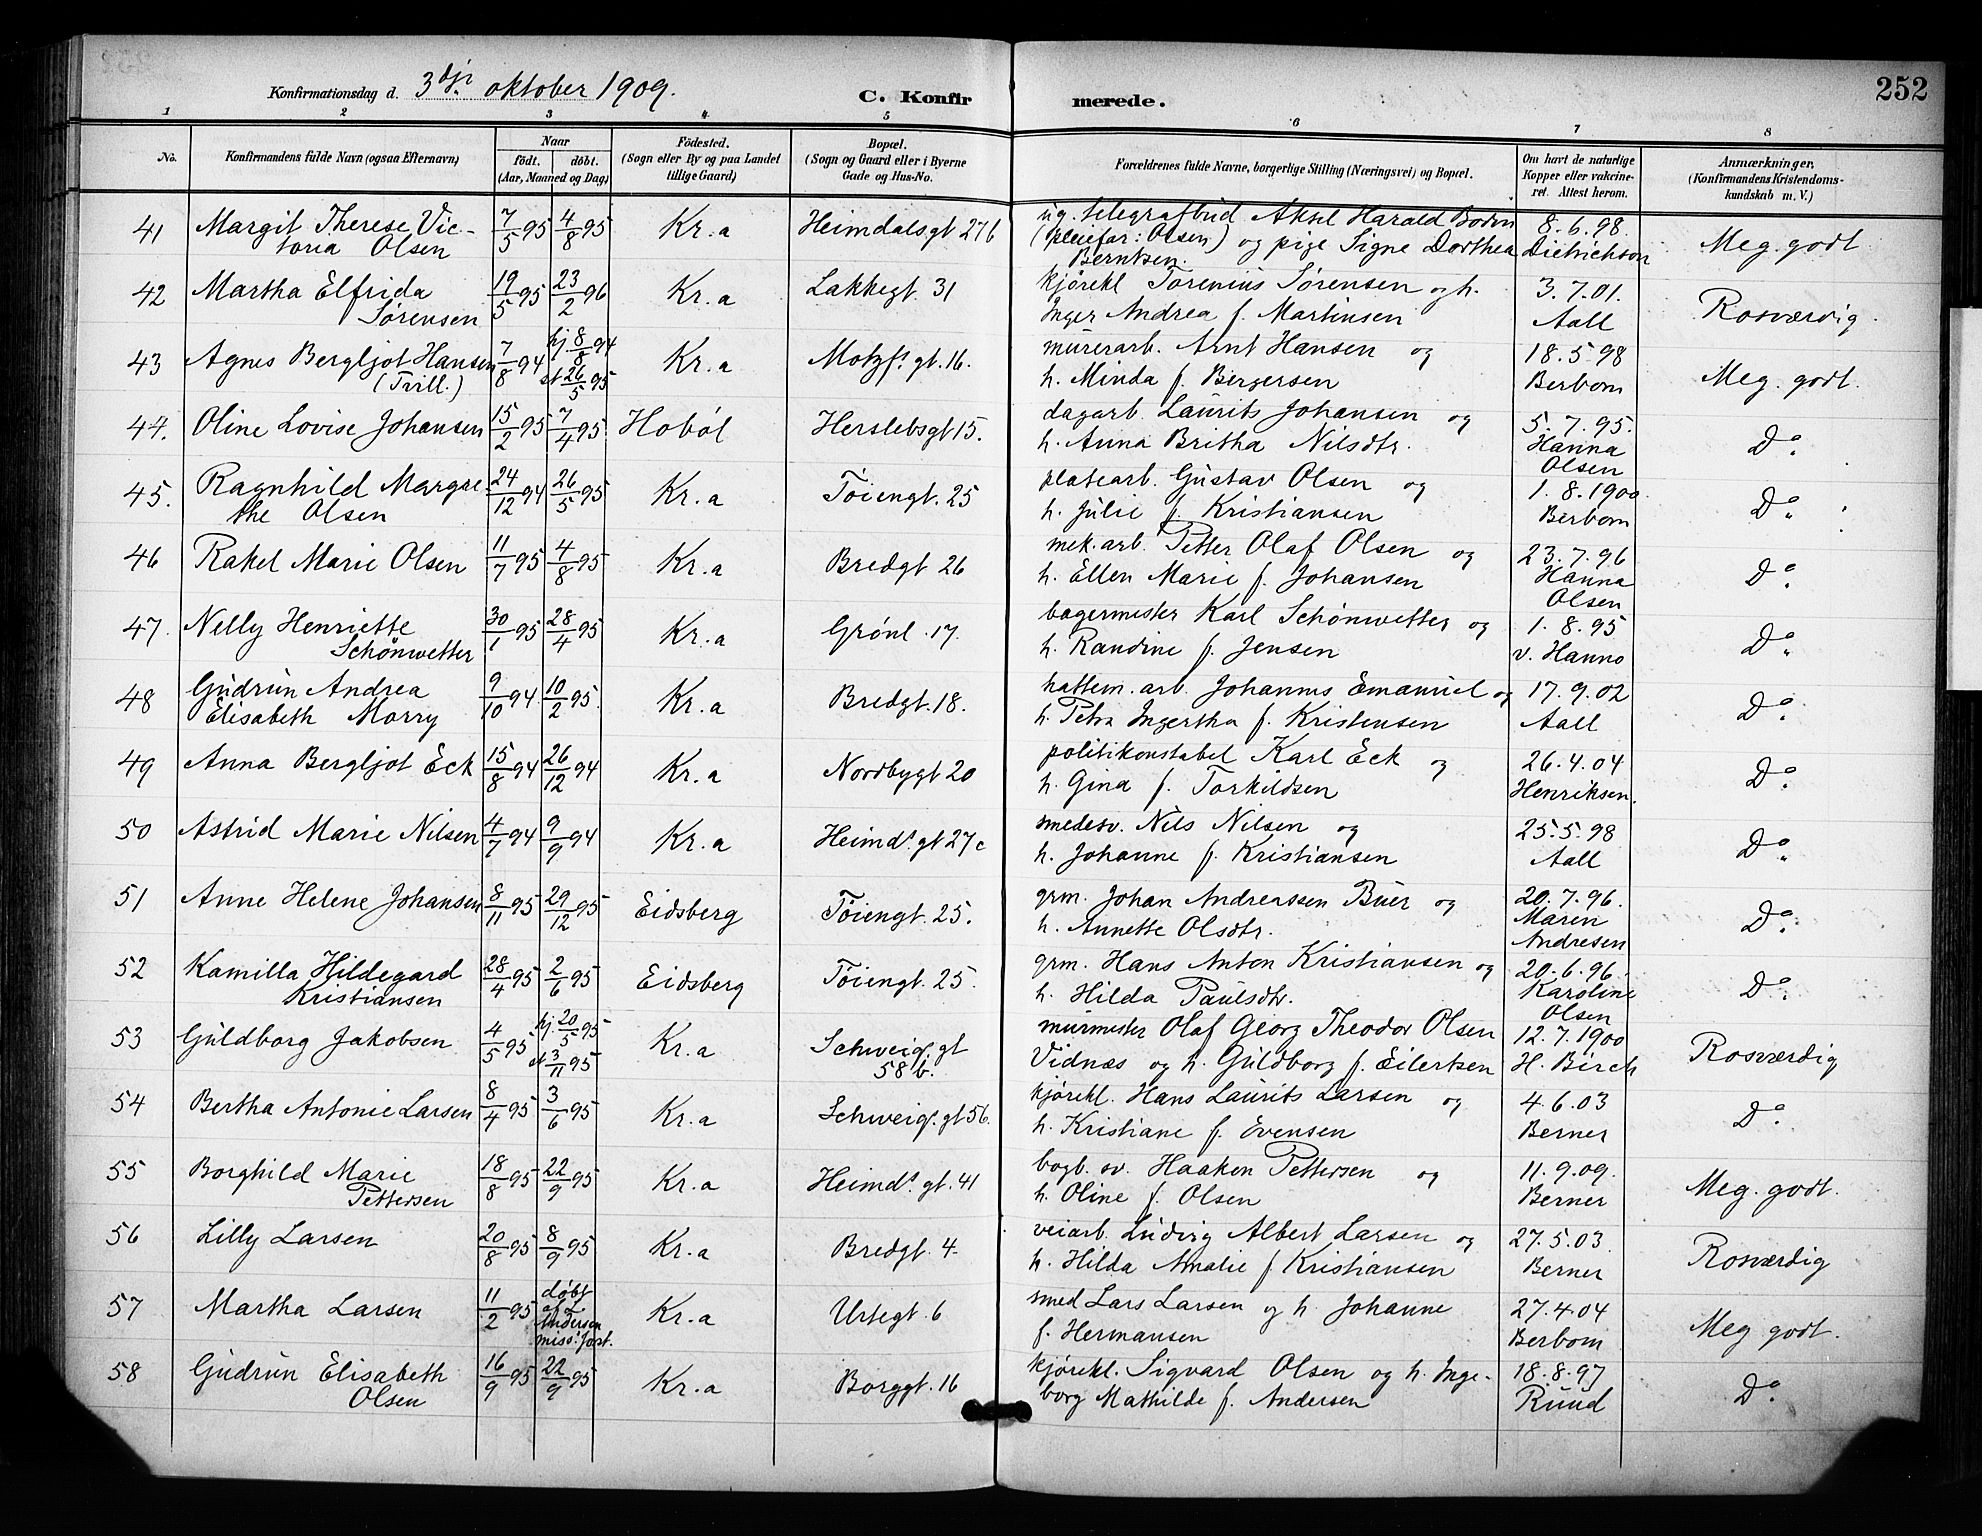 252
Konfirmationsdag d. 3dje oktober 1909.
C. Konfirmerede.
1 2 3 4 5 6 7 8
No. Konfirmandens fulde Navn (ogsaa Efternavn) Naar født. døbt. (Aar, Maaned og Dag) Fødested. (Sogn eller By og paa Landet tillige Gaard) Bopæl. (Sogn og Gaard eller i Byerne Gade og Hus-No. Forældrenes fulde Navne, borgerlige Stilling (Næringsvei) og Bopæl. Om havt de naturlige Kopper eller vakcineret. Attest herom. Anmærkninger. (Konfirmandens Kristendomskundskab m. V.)
41 Margit Therese Victoria Olsen 7/5 95 4/8 95 Kr.a Heimdalsgt 27b ug. telegrafbud Aksel Harald Boden (pleiefar: Olsen) og pige Signe Dorthea Berntsen. 8.6.98. Dietrichson Meg. godt
42 Martha Elfrida Sørensen 19/5 95 23/2 96 Kr.a Lakkegt. 31 kjørekl Torenius Sørensen og h. Inger Andrea f. Martinsen 3.7.01. Aall Rosværdig.
43 Agnes Bergljot Hansen (Trill.) 7/8 94 hj. 8/8 94 st 26/5 95 Kr.a Motzfs. gt. 16. murerarb. Arnt Hansen og h. Minda f. Bergersen 18.5.98 Berbom Meg. godt.
44. Oline Lovise Johansen 15/2 95 7/4 95 Hobøl Herslebsgt 15. dagarb. Laurits Johansen og h. Anna Britha Nilsdtr. 5.7.95. Hanna Olsen Do.
45. Ragnhild Margrethe Olsen 24/12 94 26/5 95 Kr.a Tøiengt. 25 platearb. Gustav Olsen og h. Julie f. Kristiansen 1.8.1900. Berbom Do.
46 Rakel Marie Olsen 11/7 95 4/8 95 Kr.a Bredgt 26 mek. arb. Petter Olaf Olsen og h. Ellen Marie f. Johansen 23.7.96 Hanna Olsen Do.
47. Nelly Henriette Schønwetter 30/1 95 28/4 95 Kr.a Grønl. 17. bagermester Karl Schønwetter og h. Randine f. Jensen 1.8.95 v. Hanno Do.
48 Gudrun Andrea Elisabeth Morry 9/10 94. 10/2 95. Kr.a Bredgt. 18. hattem. arb. Johannes Emanuel og h. Petra Ingertha f. Kristensen 17.9.02 Aall Do.
49 Anna Bergljot Eck 15/8 94 26/12 94 Kr.a Nordbygt 20 politikonstabel Karl Eck og h. Gina f. Torkildsen 26.4.04 Henriksen. Do.
50 Astrid Marie Nilsen 4/7 94 9/9 94 Kr.a Heimds. gt 27c smedesv. Nils Nilsen og h. Johanne f. Kristiansen 25.5.98 Aall Do.
51 Anne Helene Johansen 8/11 95 29/12 95 Eidsberg Tøiengt. 25. grm. Johan Andreassen Buer og h. Annette Olsdtr. 20.7.96. Maren Andresen Do.
52 Kamilla Hildegard Kristiansen 28/4 95 2/6 95 Eidsberg Tøiengt. 25. grm. Hans Anton Kristiansen og h. Hilda Paulsdtr. 20.6.96. Karoline Olsen Do.
53 Guldborg Jakobsen 4/5 95 hj. 20/5 95 st 3/11 95 Kr.a Schweigs. gt 58b. murmester Olaf Georg Theodor Olsen Vidnæs og h. Guldborg f. Eilertsen 12.7.1900 H. Birch Rosværdig
54 Bertha Antonie Larsen 8/4 95 3/6 95 Kr.a Schweigs. gt 56. kjørekl. Hans Laurits Larsen og h. Kristiane f. Evensen 4.6.03 Berner Do.
55 Borghild Marie Pettersen 18/8 95 22/9 95 Kr.a Heimds. gt. 41 bogb. sv. Haaken Pettersen og h. Oline f. Olsen 11.9.09. Berner Meg. godt.
56 Lilly Larsen 20/8 95 8/9 95 Kr.a Bredgt. 4. veiarb. Ludvig Albert Larsen og h. Hilda Amalie f Kristiansen 27.5.03. Berner Rosværdig
57 Martha Larsen 11/2 95 døbt af L. Andersen miss. forst. Kr.a Urtegt. 6 smed Lars Larsen og h. Johanne f. Hermansen 27.4.04 Berbom Meg godt.
58 Gudrun Elisabeth Olsen 16/9 95 22/9 95 Kr.a Borggt. 16 kjørekl. Sigvard Olsen og h. Ingeborg Mathilde f. Andersen 18.8.97 Ruud Do.